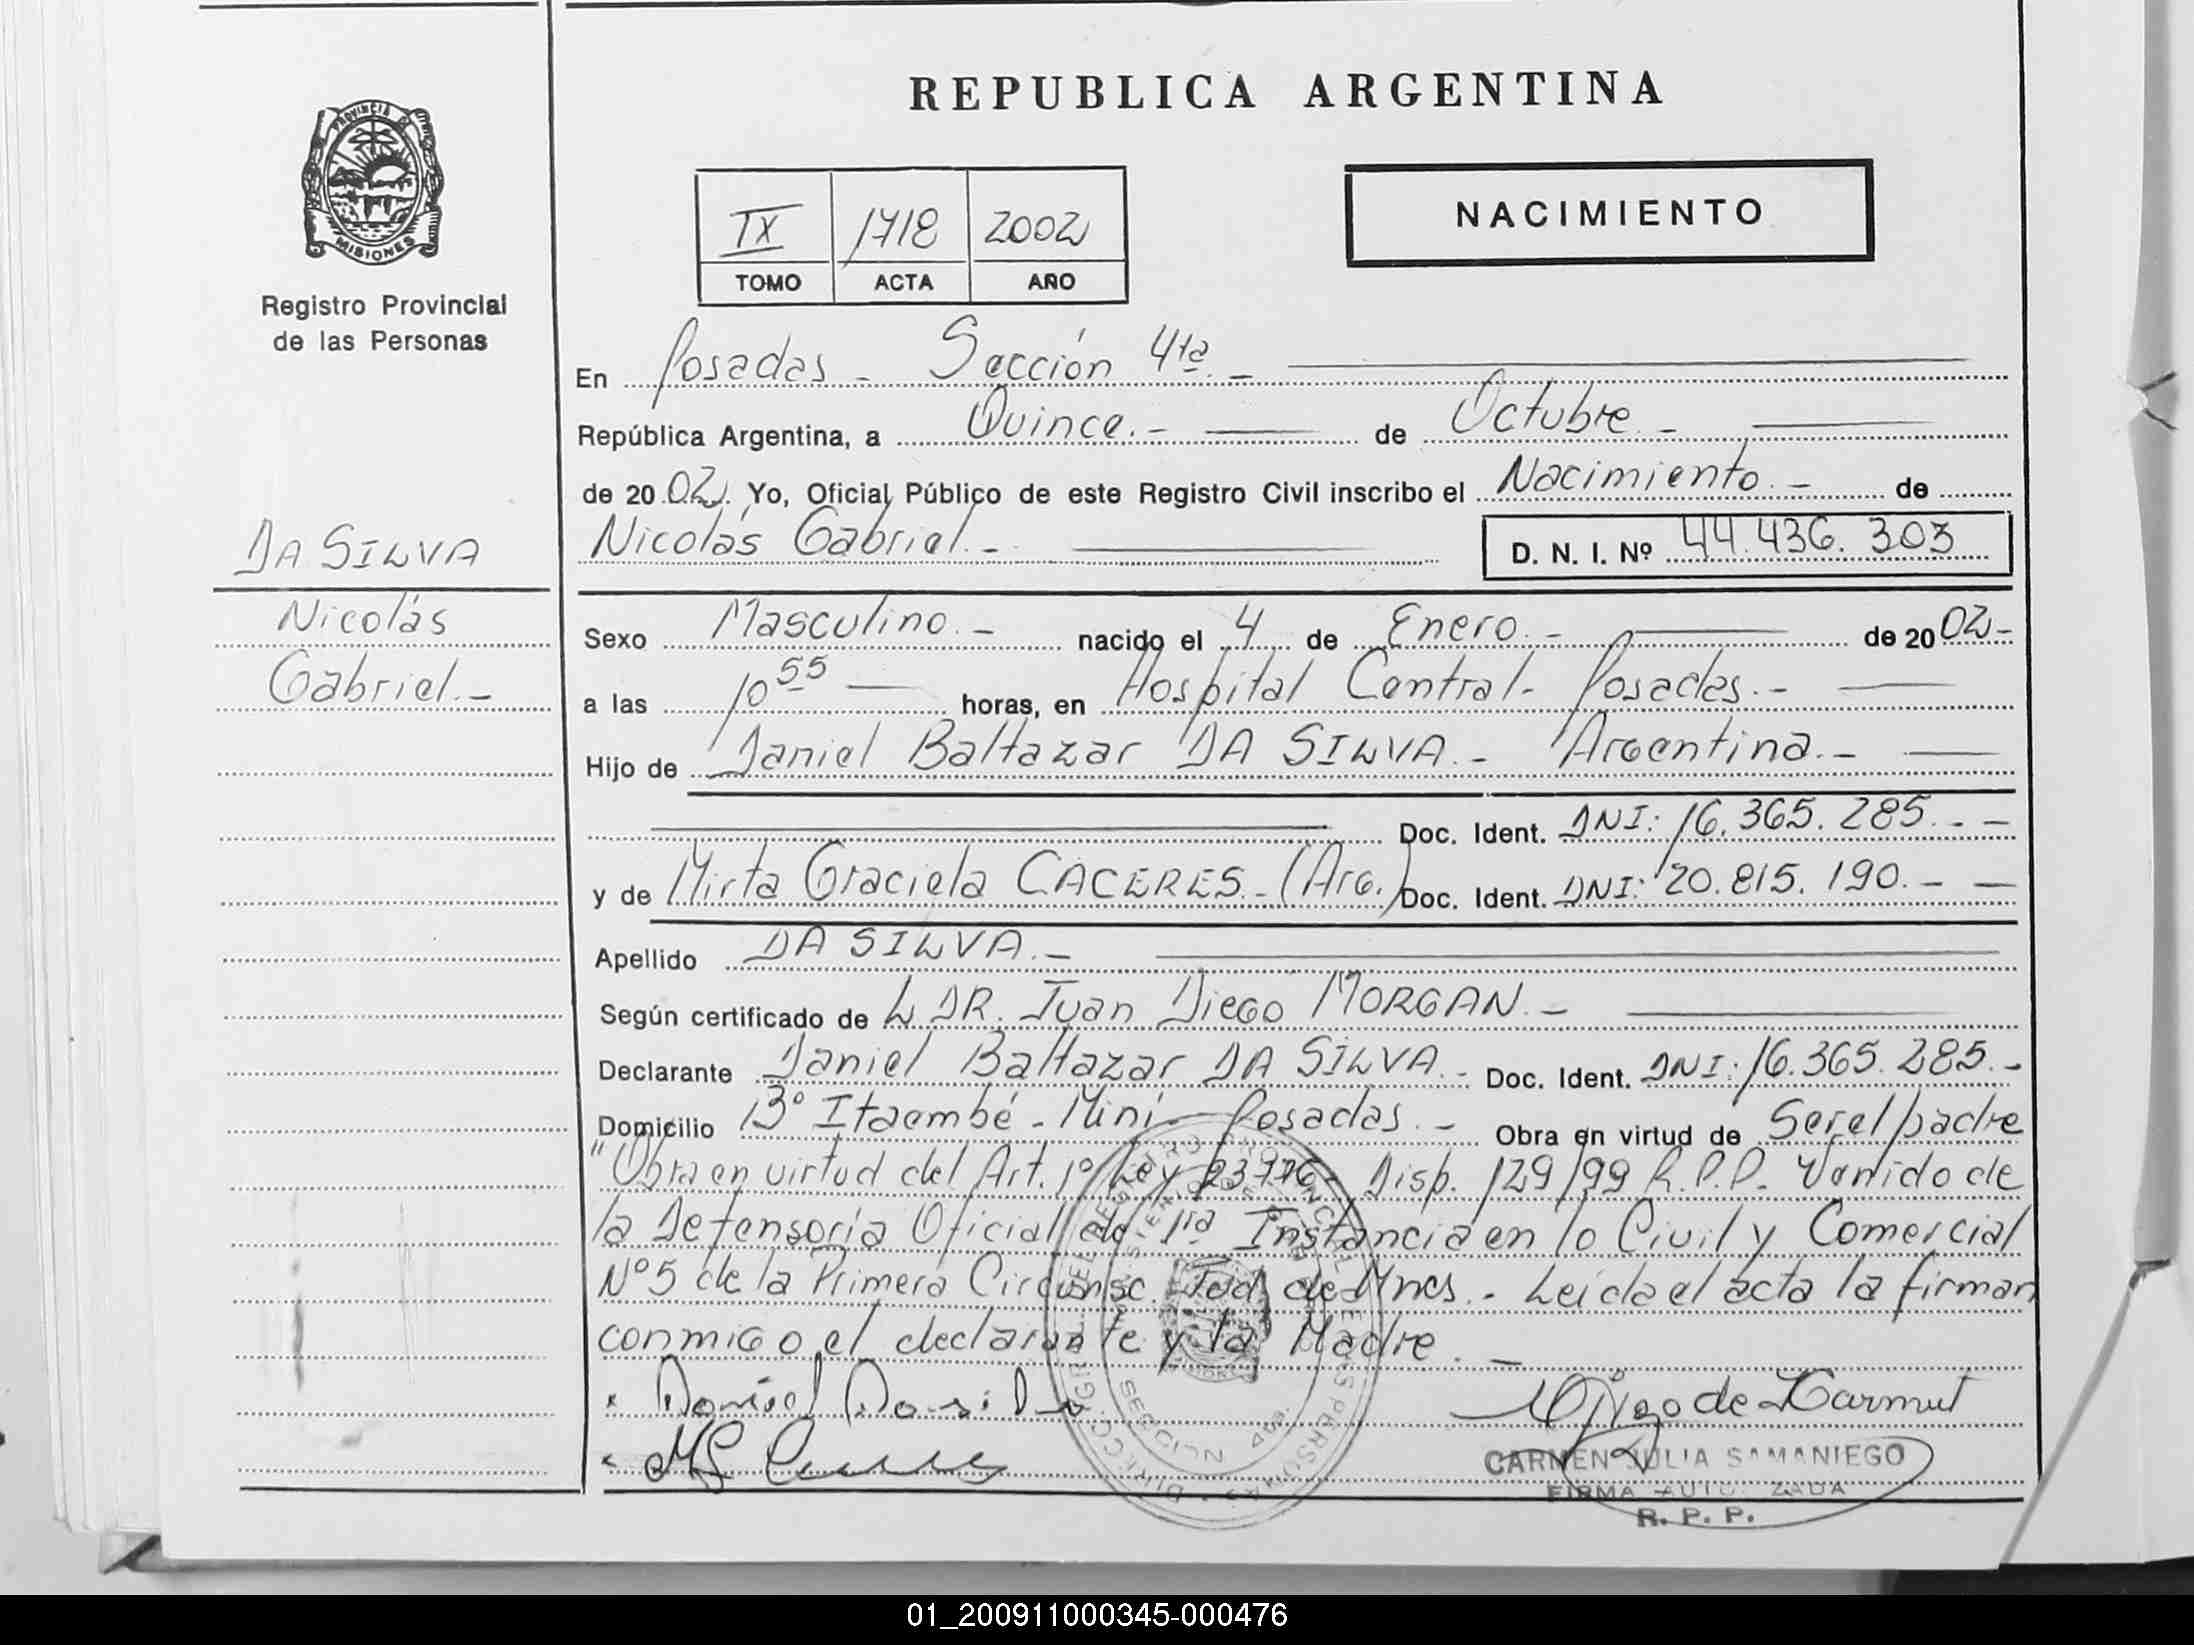 REPUBLICA ARGENTINA
PROVINCIA DE
MISIONES
Registro Provincial
de las Personas
IX 1718 2002
TOMO ACTA AÑO
NACIMIENTO
En Posadas - Sección 4ta. -
República Argentina, a Quince. - de Octubre. -
de 2002. Yo, Oficial Público de este Registro Civil inscribo el Nacimiento. - de
Nicolás Gabriel. - D. N. I. Nº 44.436.303
DA SILVA
Nicolás
Gabriel. -
Sexo Masculino. - nacido el 4 de Enero. - de 2002 -
a las 10 55 horas, en Hospital Central - Posadas. -
Hijo de Daniel Baltazar DA SILVA. - Argentina. -
Doc. Ident. DNI: 16.365.285. - -
y de Mirta Graciela CACERES. - (Arg.) Doc. Ident. DNI: 20.815.190. - -
Apellido DA SILVA. -
Según certificado de L DR. Juan Diego MORGAN. -
Declarante Daniel Baltazar DA SILVA. - Doc. Ident. DNI: 16.365.285. -
Domicilio Bº Itaembé - Miní - Posadas. - Obra en virtud de Ser el padre
"Obra en virtud del Art. 1º Ley 23776 - Disp. 129/99 R.P.P. Venido de
la Defensoría Oficial de 1ra Instancia en lo Civil y Comercial
Nº 5 de la Primera Circunsc. Jud. de Mnes. - Leída el acta la firman
conmigo el declarante y la Madre. -
Daniel Da silva
CARMEN JULIA SAMANIEGO
FIRMA AUTORIZADA
R. P. P.
01_200911000345-000476